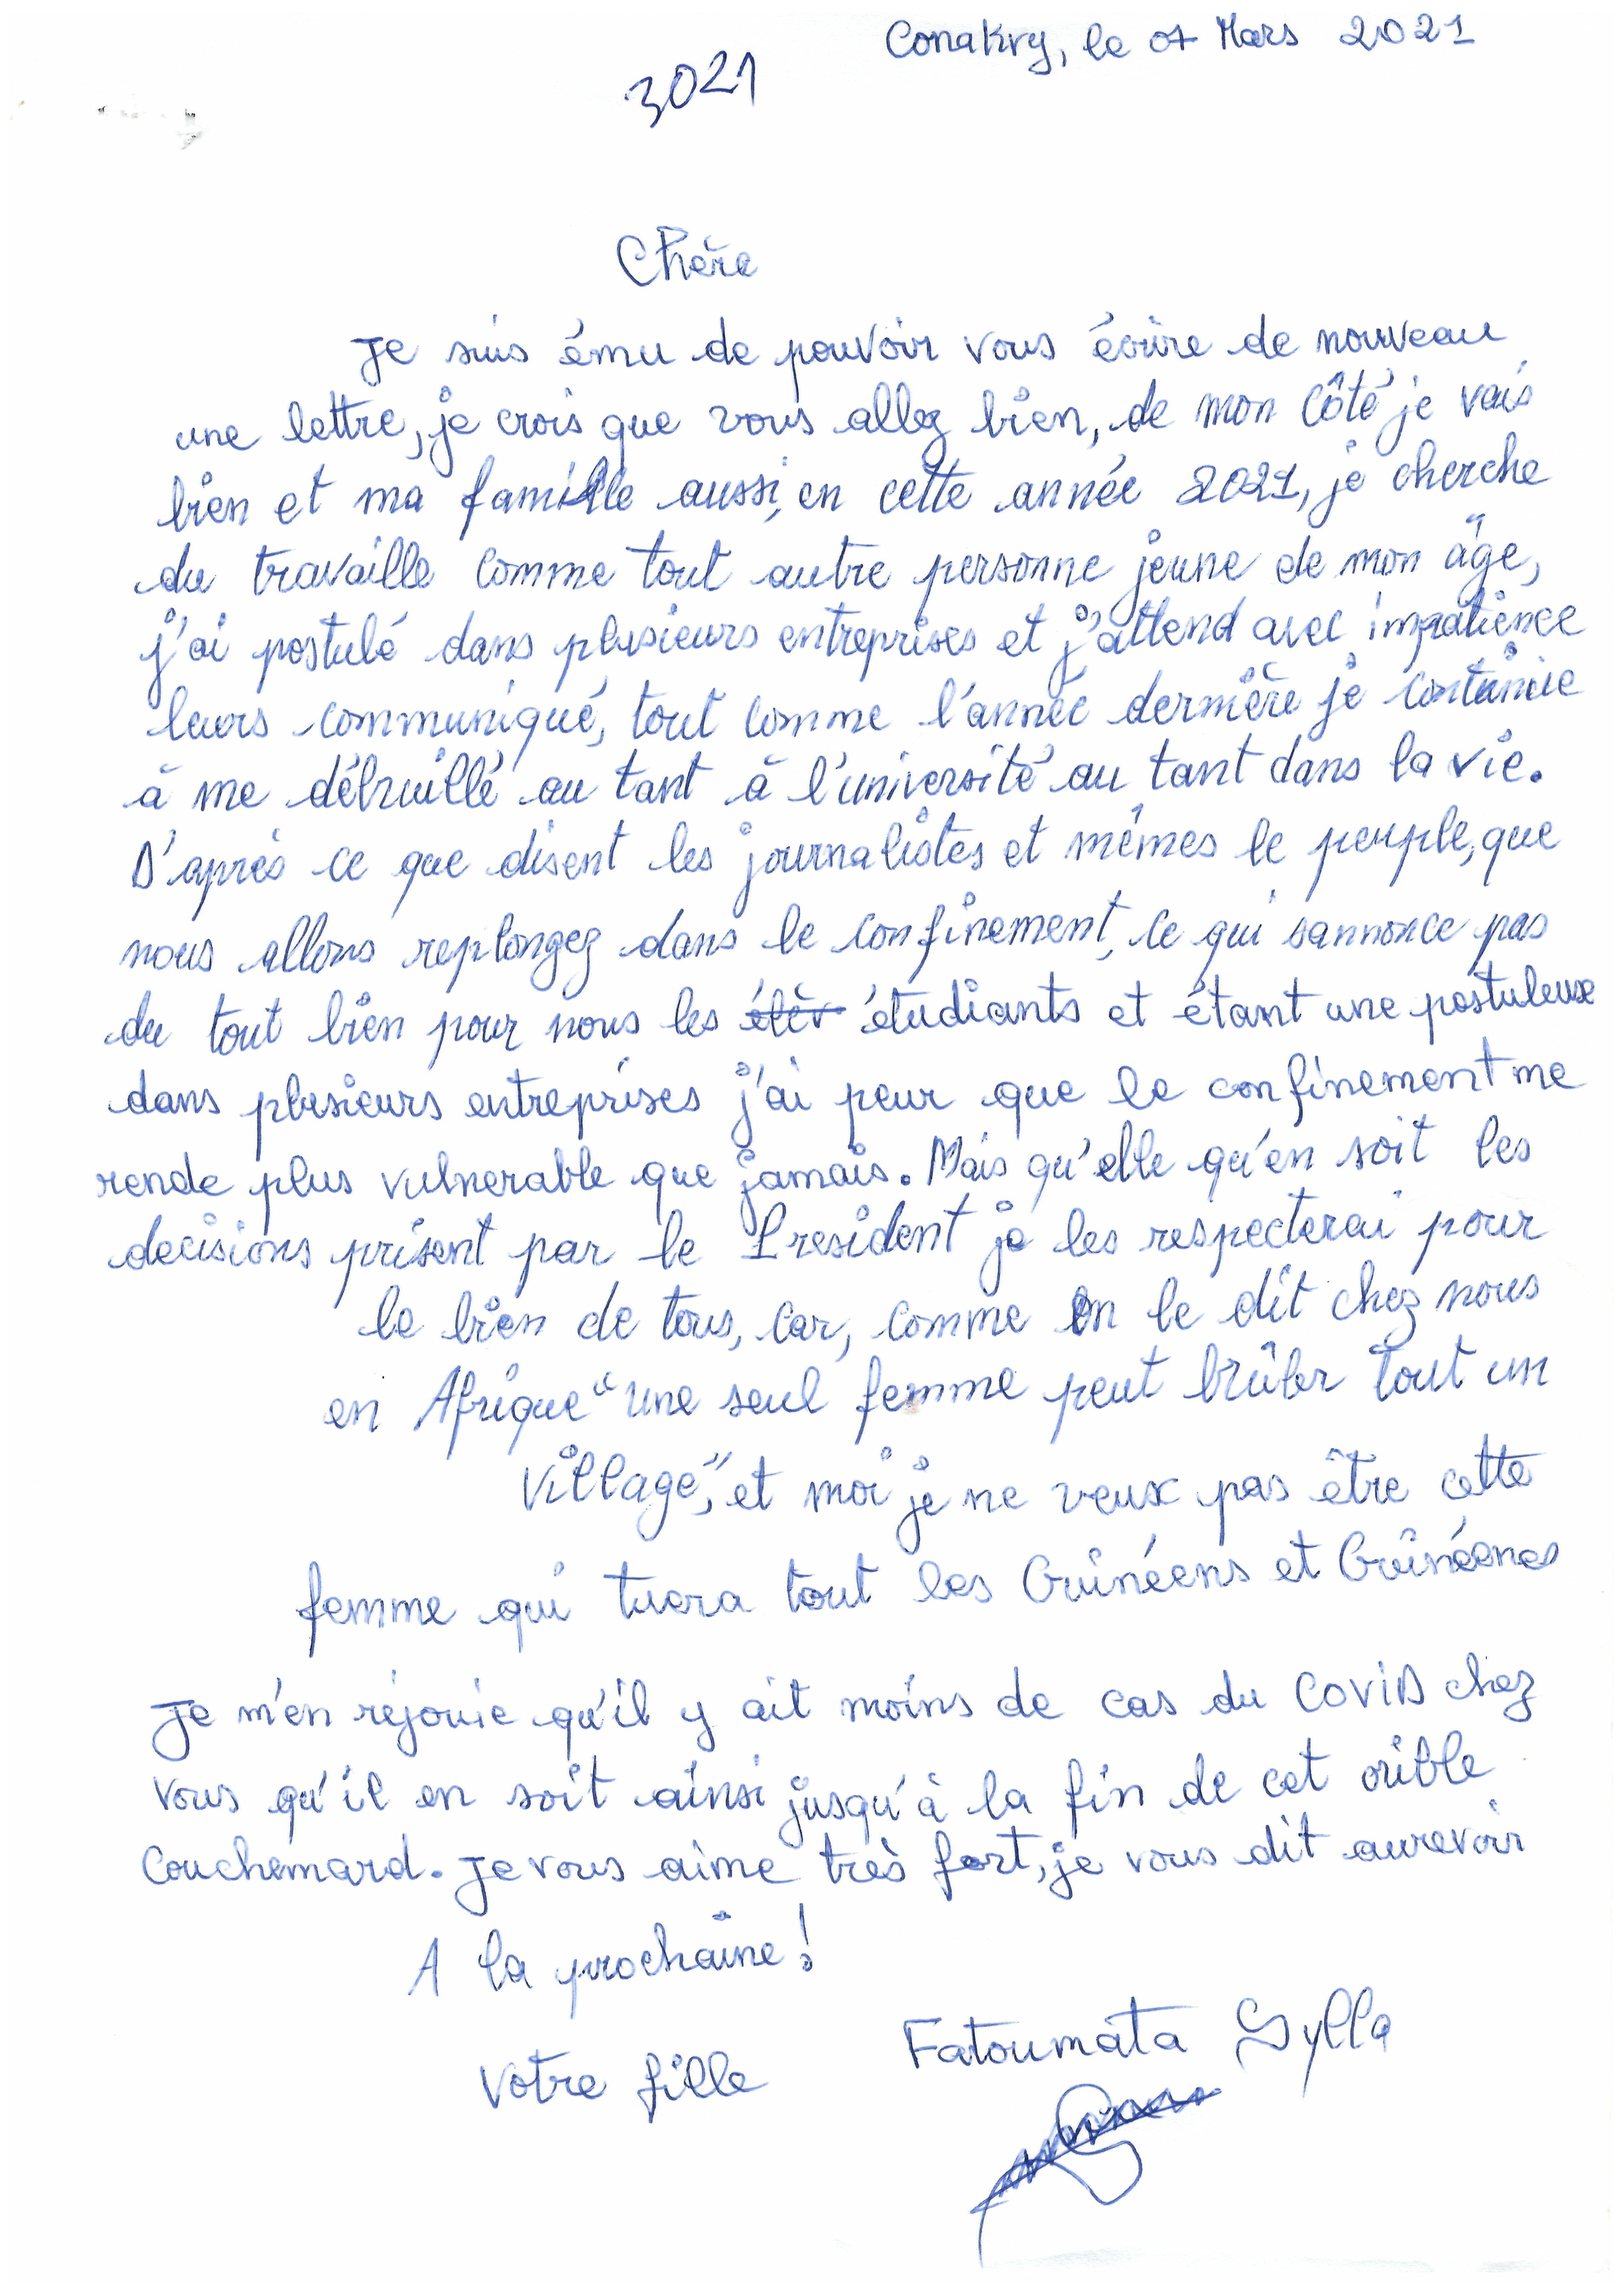 Conakry, le 07 Mars 2021
3021
Chère
Je suis ému de pouvoir vous écrire de nouveau
une lettre, je crois que vous allez bien, de mon Côté je vais
bien et ma famille aussi, en cette année 2021, je cherche
du travaille comme tout autre personne jeune de mon âge,
j'ai postulé dans plusieurs entreprises et j'attend avec impatience
leurs communiqué, tout comme l'année dernière je continue
à me débruillé au tant à l'université au tant dans la vie.
D'après ce que disent les journalistes et mêmes le peuple, que
nous allons replongez dans le confinement, ce qui sannonce pas
du tout bien pour nous les élèv étudiants et étant une postuleuse
dans plusieurs entreprises j'ai peur que le confinement me
rende plus vulnerable que jamais. Mais qu'elle qu'en soit les
decisions prisent par le President je les respecterai pour
le bien de tous, car, comme on le dit chez nous
en Afrique "une seul femme peut brûler tout un
village", et moi je ne veux pas être cette
femme qui tuera tout les Guinéens et Guinéenes
Je m'en réjouie qu'il y ait moins de cas du COVID chez
vous qu'il en soit ainsi jusqu'à la fin de cet orible
Couchemard. Je vous aime très fort, je vous dit aurevoir
A la prochaine!
Fatoumata Sylla
Votre fille